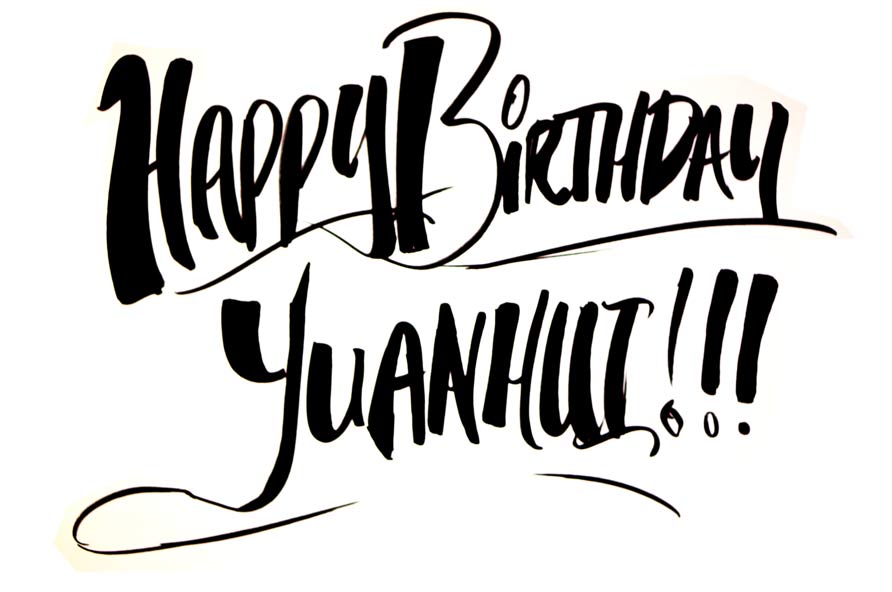 Happy Birthday
Yuanhui!!!